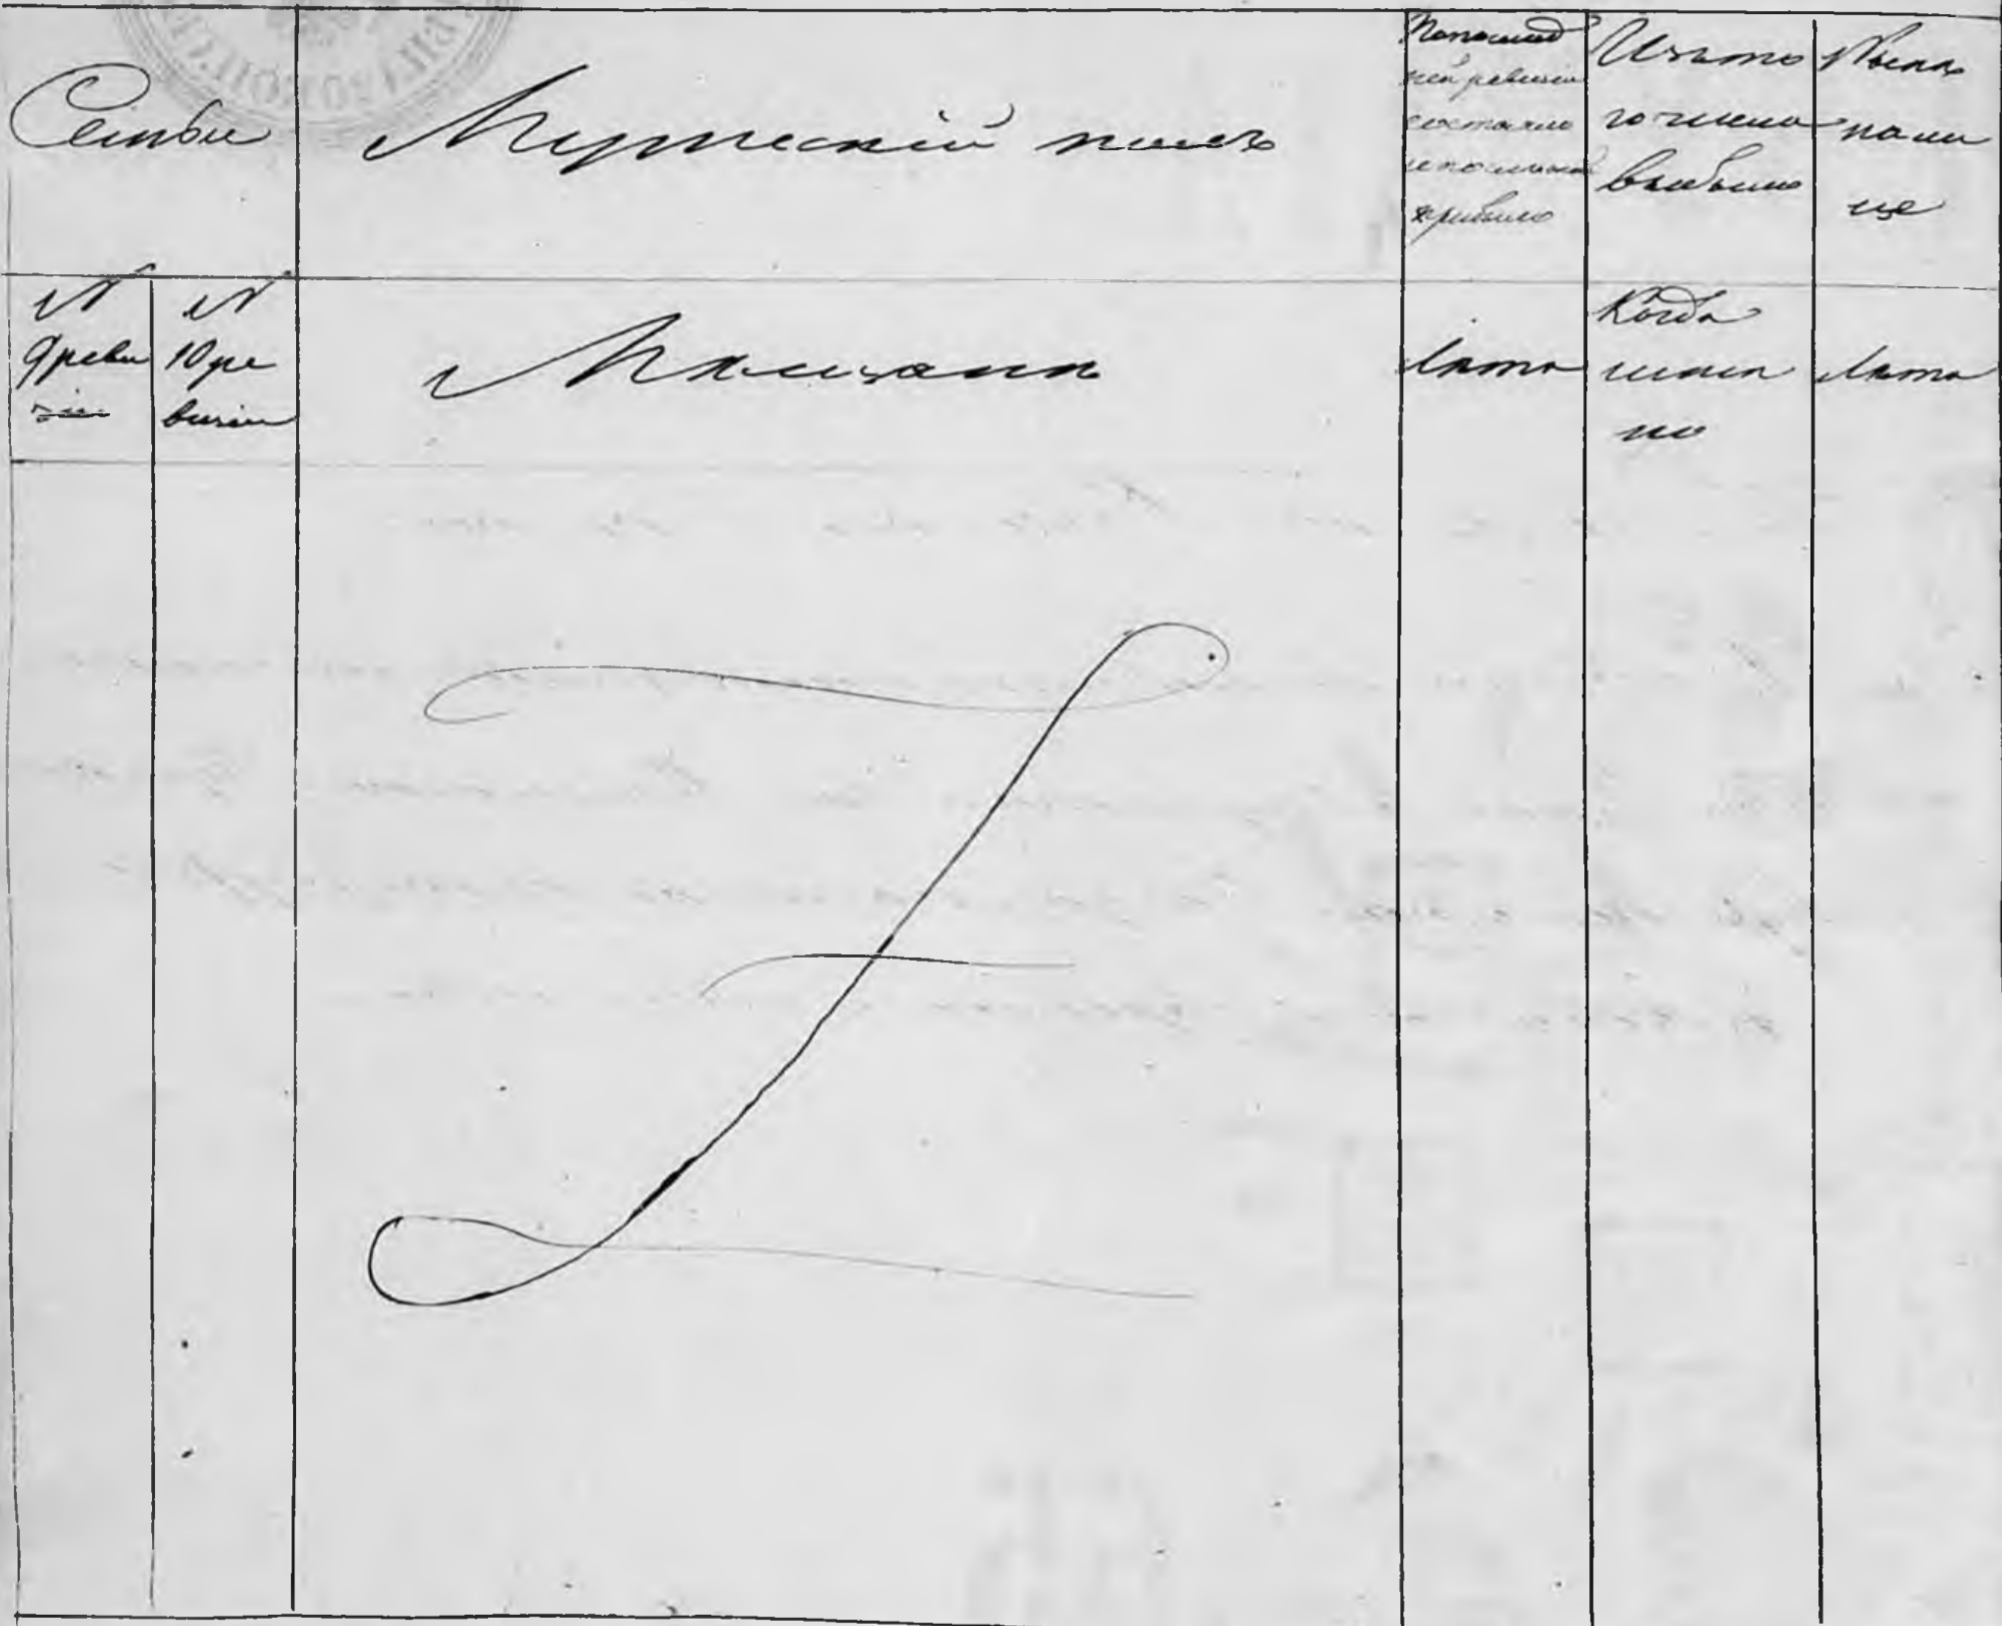 Семьи
Мужескій полъ
По послед
ней ревизіи
состояло
и после того
прибыло
Изъ то
го числа
выбыло
Ныне
на ли
це
№
9 реви
зіи
№
10 ре
визіи
Мещане
Лета
Когда
имен
но
Лета